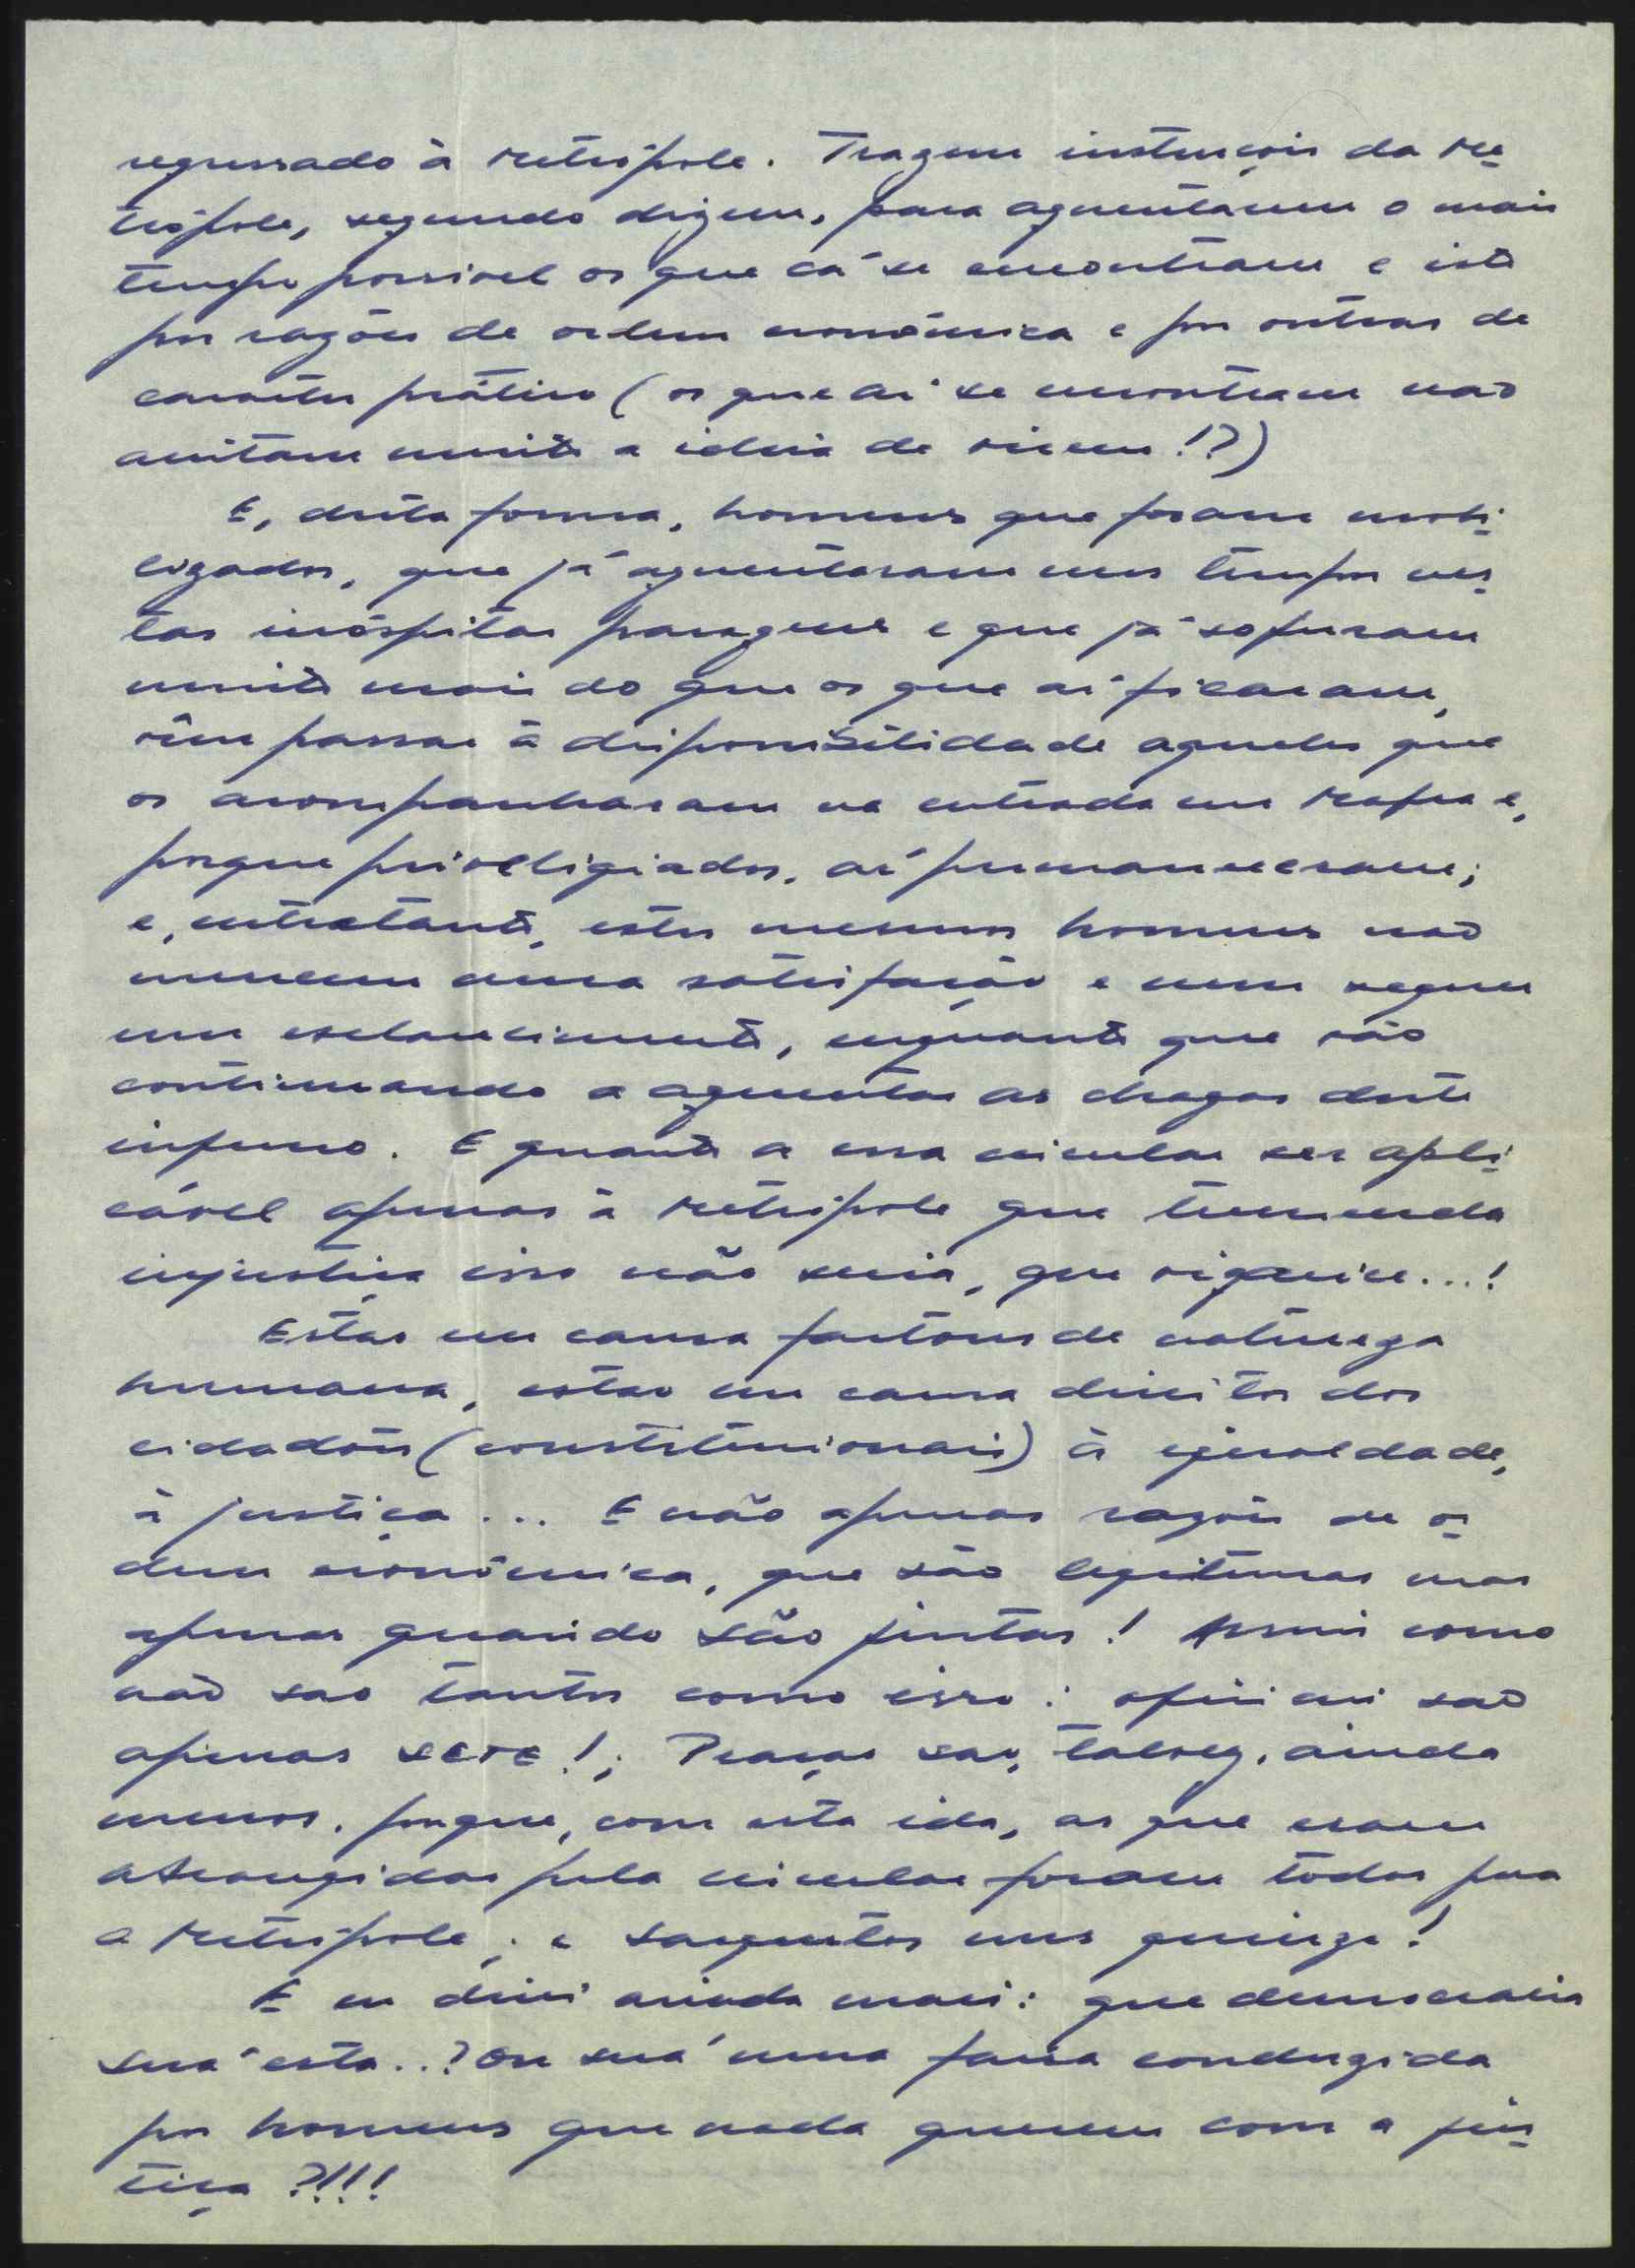 regressado à Metrópole. Trazem instruçois da Me-
trópole, segundo dizem, para aguentarem o mais
tempo possivel os que cá se encontram e isto
por razões de ordem económica e por outras de
caracter prático (os que aí se encontram não
aceitam muito a ideia de virem!?)
E, desta forma, homens que foram mobi-
lizados, que já aguentaram uns tempos nes-
tas inóspitas paragens e que já sofreram
muito mais do que os que aí ficaram,
vêm passar à disponibilidade aqueles que
os acompanharam na entrada em Mafra e,
porque priveligiados, aí permaneceram;
e, entretanto, estes mesmos homens não
merecem uma satisfação e nem sequer
um esclarecimento, enquanto que vão
continuando a aguentar as chagas deste
inferno. E quanto a essa circular ser apli-
cável apenas à Metrópole que tremenda
injustiça isso não seria, que vigarice...!
Estao em causa factores de natureza
humana, estao em causa direitos dos
cidadãos (constitucionais) à igualdade,
à justiça... E não apenas razões de or-
dem económica, que são legitimas mas
apenas quando são justas! Assim como
não sao tantos como isso: oficiais são
apenas SETE!; Praças sao, talvez, ainda
menos, porque, com esta ida, as que eram
abrangidas pela circular foram todas para
a Metrópole; e sargentos uns quinze!
E eu direi ainda mais: que democracia
será esta..? Ou será uma farsa conduzida
por homens que nada querem com a jus-
tiça?!!!